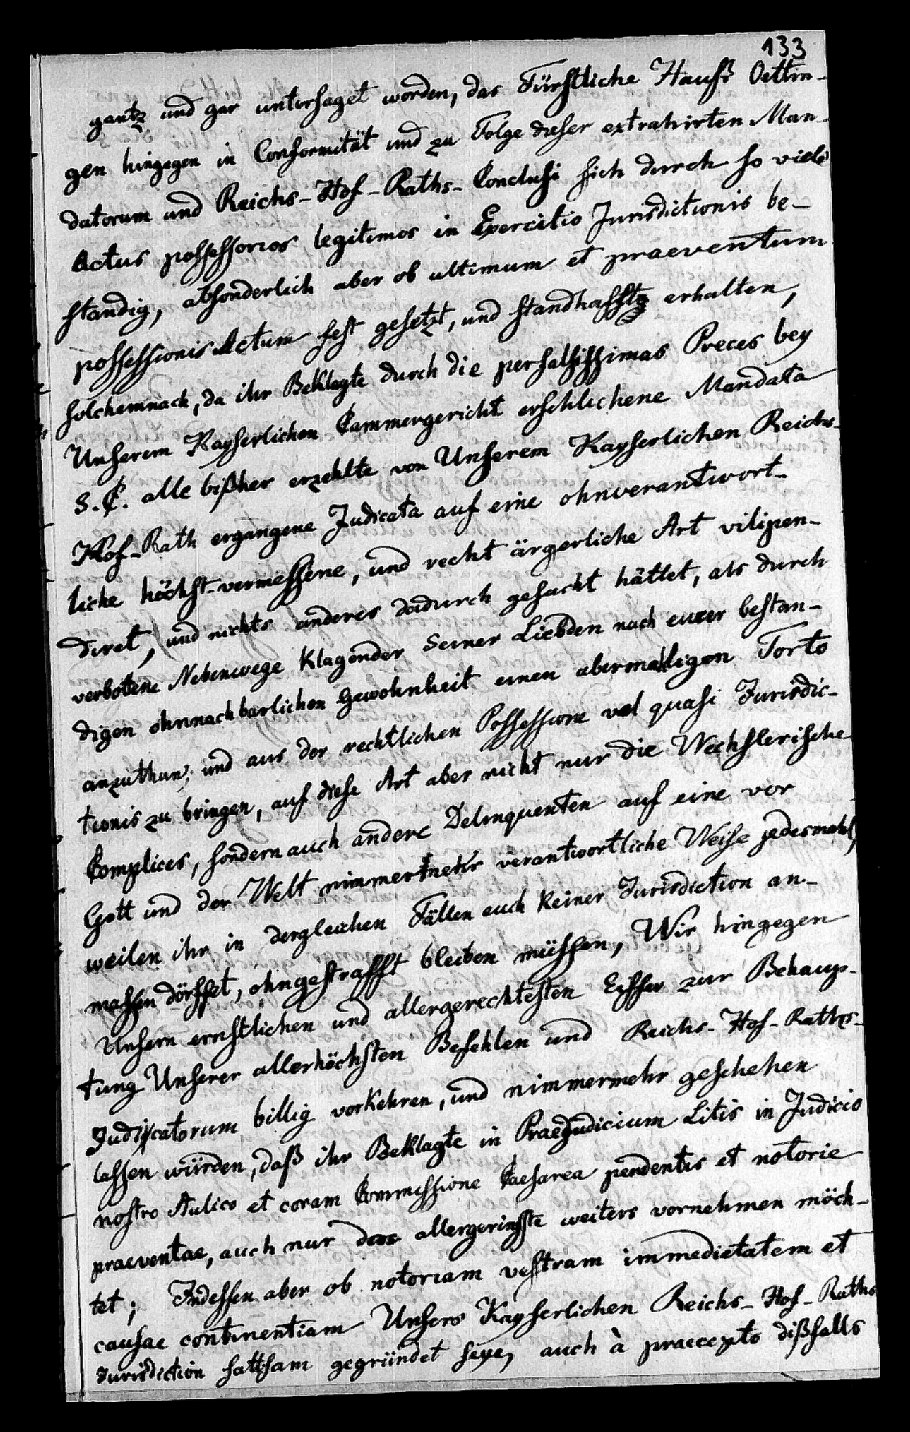 133
gantz und gar untersaget worden, das Fürstliche Hauß Oettin-
gen hingegen in Conformität und zu Folge dieser extrahirten Man-
datorum und Reichs-Hof-Raths-Conclusi sich durch so viele
Actus possessorios legitimos in Exercitio Jurisdictionis be-
standig, absonderlich aber ob ultimum et praeventum
possessionis Actum fest gesetzt, und standhafftg erhalten,
solchemnach, da ihr Beklagte durch die perfalsissimas Preces bey
Unserem Kayserlichen Cammergericht erschlichene Mandata
S. C. alle bißher erzehlte von Unserem Kayserlichen Reichs-
Hof-Rath ergangene Judicata auf eine ohnverantwort-
liche höchst-vermessene, und recht ärgerliche Art vilipen-
diret, und nichts anderes dadurch gesucht hättet, als durch
verbotene Nebenwege Klagender Seiner Liebden nach eurer bestan-
digen ohnnachbarlichen Gewohnheit einen abermaligen Torto
anzuthun, und aus der rechtlichen Possession vel quasi Jurisdic-
tionis zu bringen, auf diese Art aber nicht nur die Wechslerische
Complices, sondern auch andere Delinquenten auf eine vor
Gott und der Welt nimmermehr verantwortliche Weise jedesmahl,
weilen ihr in dergleichen Fällen euch keiner Jurisdiction an-
massen dörffet, ohngestrafft bleiben müssen, Wir hingegen
Unsern ernstlichen und allergerechtesten Eiffer zur Behaup-
tung Unserer allerhöchsten Befehlen und Reichs-Hof-Raths-
Judicatorum billig vorkehren, und nimmermehr geschehen
lassen würden, daß ihr Beklagte in Praejudicium Litis in Judicio
nostro Aulico et coram Commissione Caesarea pendentis et notorie
praeventae, auch nur das allergeringste weiters vornehmen möch-
tet; Indessen aber ob notoriam vestram immedietatem et
causae continentiam Unsers Kayserlichen Reichs-Hof-Raths
Jurisdiction sattsam gegründet seye, auch à praecepto dißfalls